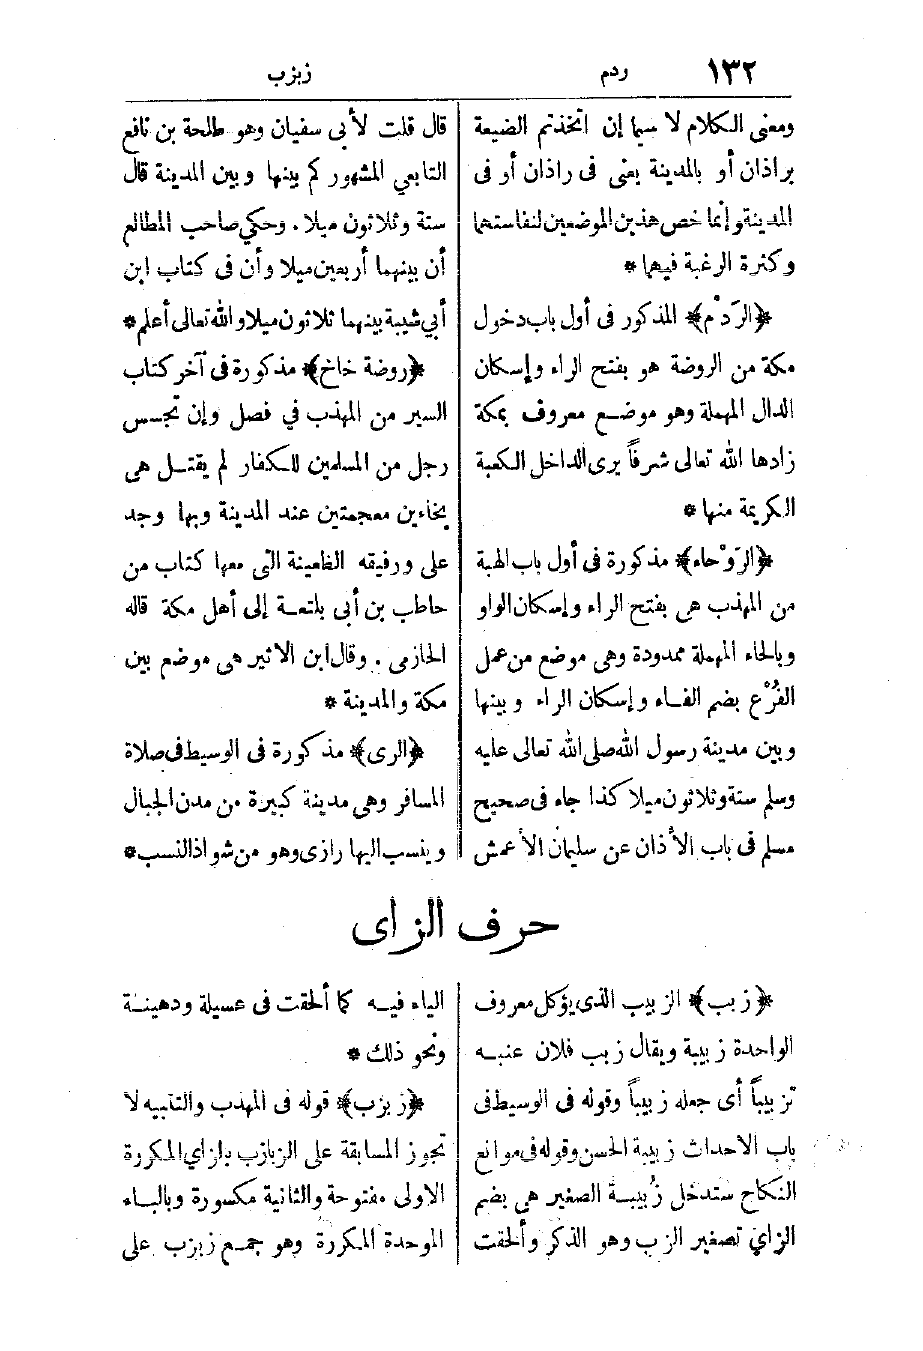 ١٣٢ ردم زبزب
ومعنى الكلام لا سيما إن اتخذتم الضيعة
براذان أو بالمدينة يعنى فى راذان أو فى
المدينة وإنما خص هذين الموضعين لنفاستهما
وكثرة الرغبة فيهما *
﴿الرَدْم﴾ المذكور فى أول باب دخول
مكة من الروضة هو بفتح الراء وإسكان
الدال المهملة وهو موضع معروف بمكة
زادها الله تعالى شرفاً يرى الداخل الكعبة
الكريمة منها *
﴿الرَوْحاء﴾ مذكورة فى أول باب الهبة
من المهذب هى بفتح الراء وإسكان الواو
وبالحاء المهملة ممدودة وهى موضع من عمل
الفُرْع بضم الفاء وإسكان الراء وبينها
وبين مدينة رسول الله صلى الله تعالى عليه
وسلم ستة وثلاثون ميلا كذا جاء فى صحيح
مسلم فى باب الأذان عن سليمان الأعمش
قال قلت لأبى سفيان وهو طلحة بن نافع
التابعي المشهور كم بينها وبين المدينة قال
ستة وثلاثون ميلا . وحكي صاحب المطالع
أن بينهما أربعين ميلا وأن فى كتاب ابن
أبي شيبة بينهما ثلاثون ميلا والله تعالى أعلم *
﴿روضة خاخ﴾ مذكورة فى آخر كتاب
السير من المهذب في فصل وإن تجسس
رجل من المسلمين للكفار لم يقتل هى
بخاءين معجمتين عند المدينة وبها وجد
على ورفيقه الظعينة التى معها كتاب من
حاطب بن أبى بلتعة إلى أهل مكة قاله
الحازمى . وقال ابن الاثير هى موضع بين
مكة والمدينة *
﴿الرى﴾ مذكورة فى الوسيط فى صلاة
المسافر وهى مدينة كبيرة من مدن الجبال
وينسب اليها رازى وهو من شواذ النسب *
حرف الزاى
﴿زبب﴾ الزبيب الذى يؤكل معروف
الواحدة زبيبة ويقال زبب فلان عنبه
تزبيباً أى جعله زبيباً وقوله فى الوسيط فى
باب الاحداث زبيبة الحسن وقوله فى موانع
النكاح ستدخل زُبيبة الصغير هى بضم
الزاي تصغير الزب وهو الذكر وألحقت
الياء فيه كما ألحقت فى عسيلة ودهينة
ونحو ذلك *
﴿زبزب﴾ قوله فى المهذب والتنبيه لا
تجوز المسابقة على الزبازب بالزاي المكررة
الاولى مفتوحة والثانية مكسورة وبالباء
الموحدة المكررة وهو جمع زبزب على